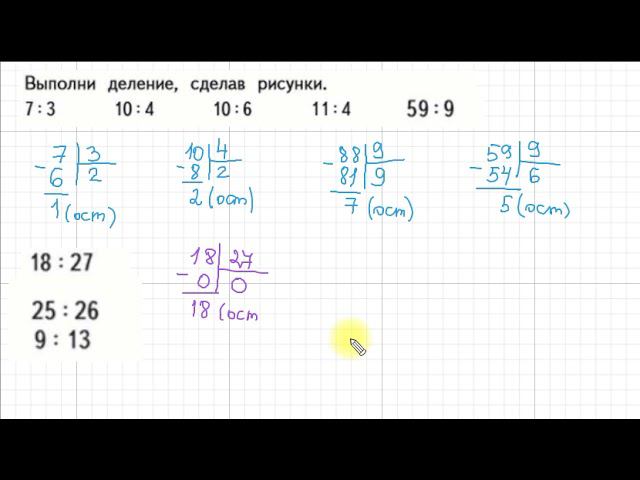 Выполни деление, сделав рисунки.
7 : 3 10 : 4 10 : 6 11 : 4 59 : 9
7 3 10 4 88 9 59 9
- 6 2 - 8 2 - 81 9 - 54 6
1 (ост) 2 (ост) 7 (ост) 5 (ост)
18 : 27 18 27
- 0 0
25 : 26 18 (ост
9 : 13